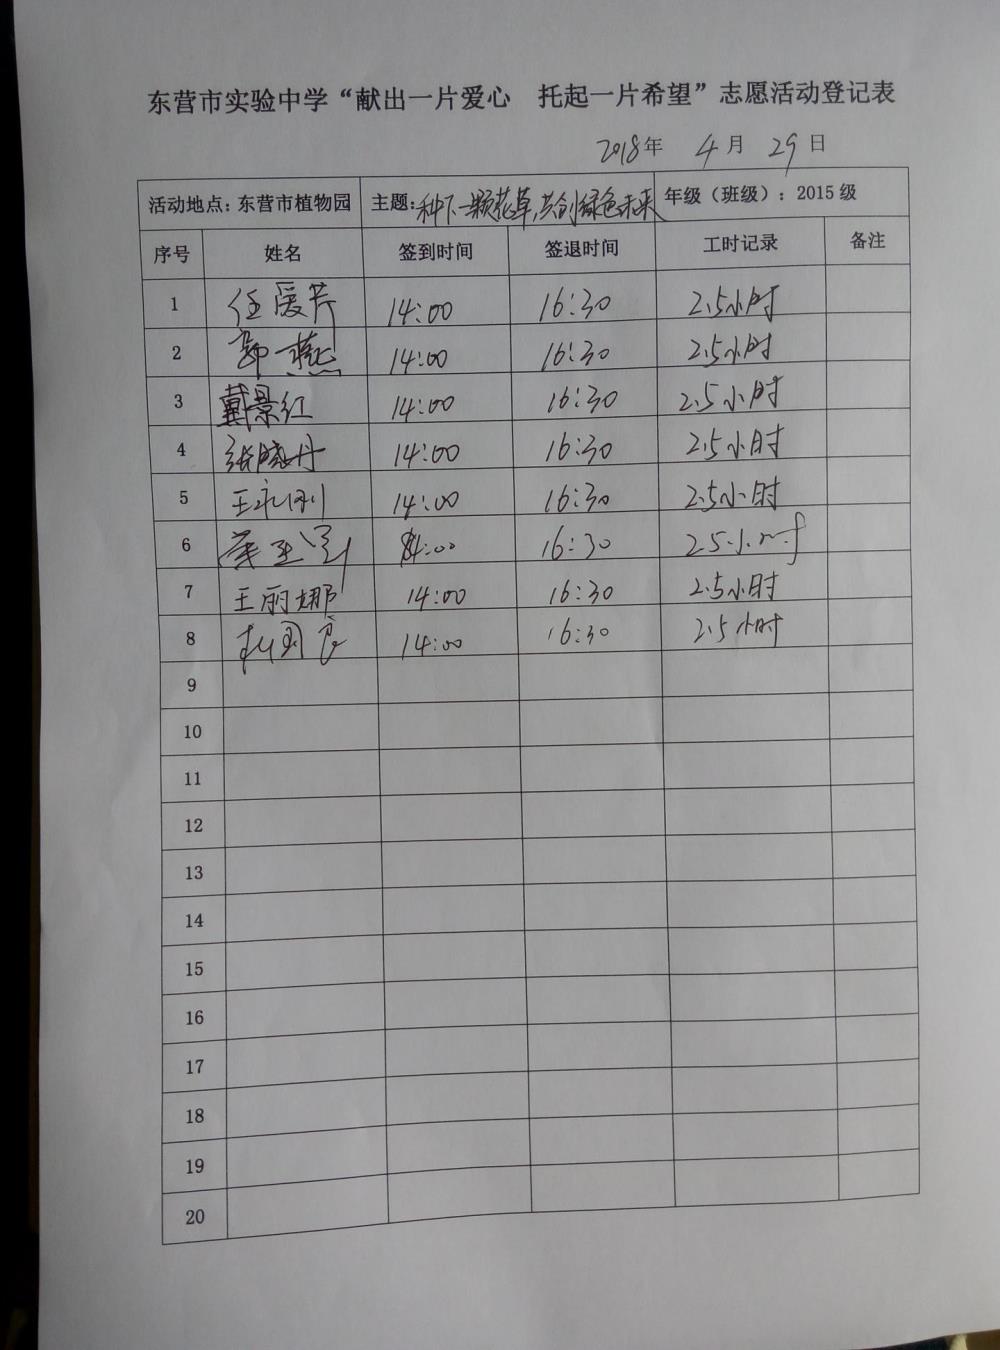 东营市实验中学“献出一片爱心 托起一片希望”志愿活动登记表
2018年 4月 29日
活动地点：东营市植物园 主题：种下一颗花草，共创绿色未来 年级（班级）：2015级
序号 姓名 签到时间 签退时间 工时记录 备注
1 任爱芹 14:00 16:30 2.5小时
2 郭燕 14:00 16:30 2.5小时
3 戴景红 14:00 16:30 2.5小时
4 张晓丹 14:00 16:30 2.5小时
5 王永刚 14:00 16:30 2.5小时
6 14:00 16:30 2.5小时
7 王丽娜 14:00 16:30 2.5小时
8 14:00 16:30 2.5小时
9
10
11
12
13
14
15
16
17
18
19
20